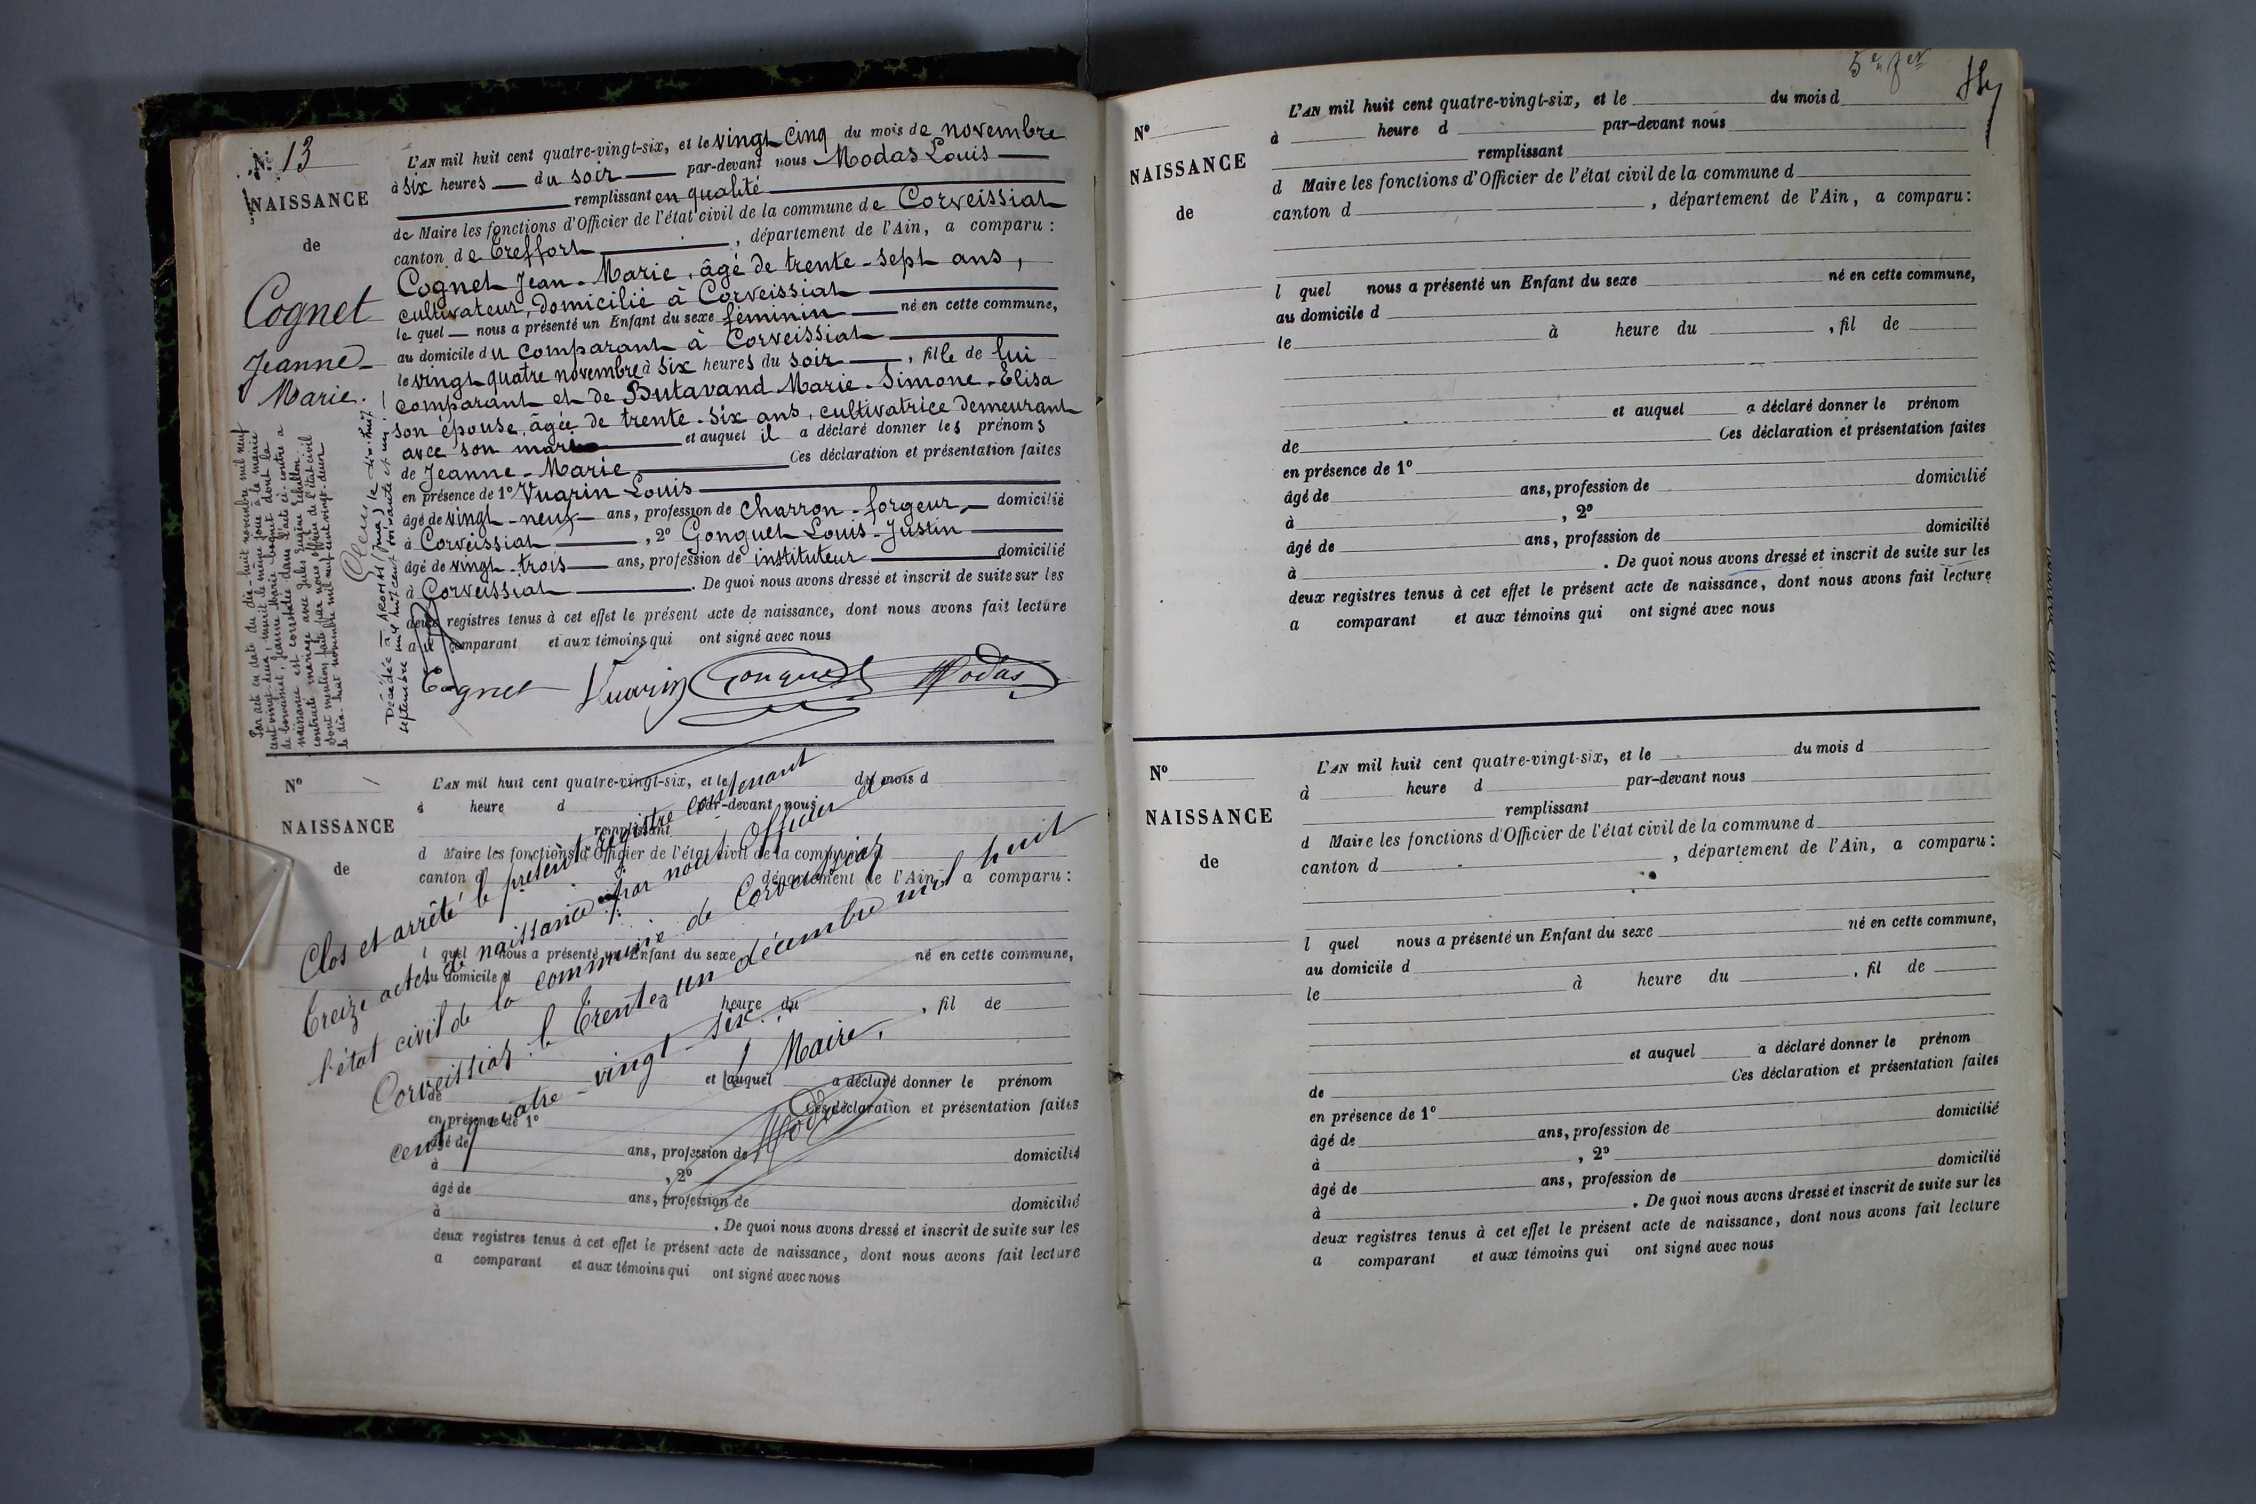 N° 13
NAISSANCE
de
Cognet
Jeanne-
Marie.
L'AN mil huit cent quatre-vingt-six, et le vingt cinq du mois de novembre
à six heures du soir par-devant nous Modas Louis
remplissant en qualité
de Maire les fonctions d'Officier de l'état civil de la commune de Corveissiat
canton de Treffort, département de l'Ain, a comparu :
Cognet Jean-Marie, âgé de trente-sept ans,
cultivateur, domicilié à Corveissiat
le quel nous a présenté un Enfant du sexe féminin né en cette commune,
au domicile du comparant à Corveissiat
le vingt-quatre novembre à six heures du soir, fille de lui
comparant et de Butavand Marie-Simone-Elisa
son épouse, âgée de trente-six ans, cultivatrice demeurant
avec son mari et auquel il a déclaré donner les prénoms
de Jeanne-Marie Ces déclaration et présentation faites
en présence de 1° Vuarin Louis
âgé de vingt-neuf ans, profession de charron-forgeur, domicilié
à Corveissiat, 2° Gonguet Louis-Justin
âgé de vingt-trois ans, profession de instituteur domicilié
à Corveissiat. De quoi nous avons dressé et inscrit de suite sur les
deux registres tenus à cet effet le présent acte de naissance, dont nous avons fait lecture
au comparant et aux témoins qui ont signé avec nous
Cognet Vuarin Gonguet Modas
Par acte en date du dix-huit novembre mil neuf
cent vingt deux, inscrit le même jour à la mairie
de Corveissiat, Jeanne Marie Cognet dont la
naissance est constatée dans l'acte ci-contre a
contracté mariage avec Jules Eugène
Dont mention faite par nous, officier de l'état civil
le dix-huit novembre mil neuf cent vingt-deux
Décédée à AROMAS (Jura) le dix-huit
septembre mil neuf cent soixante et un
N°
NAISSANCE
de
L'AN mil huit cent quatre-vingt-six, et le du mois d
à heure d par-devant nous
remplissant
d Maire les fonctions d'Officier de l'état civil de la commune d
canton d département de l'Ain, a comparu :
l quel nous a présenté un Enfant du sexe né en cette commune,
au domicile d
à heure du , fil de
et auquel a déclaré donner le prénom
de Ces déclaration et présentation faites
en présence de 1°
âgé de ans, profession de domicilié
à , 2°
âgé de ans, profession de domicilié
à . De quoi nous avons dressé et inscrit de suite sur les
deux registres tenus à cet effet le présent acte de naissance, dont nous avons fait lecture
a comparant et aux témoins qui ont signé avec nous
Clos et arrêté le présent registre contenant
Treize actes de naissance par nous Officier de
l'état civil de la commune de Corveissiat
Corveissiat le Trente un décembre mil huit
cent quatre-vingt-six.
Le Maire,
Modas
5e et der
N°
NAISSANCE
de
L'AN mil huit cent quatre-vingt-six, et le du mois d
à heure d par-devant nous
remplissant
d Maire les fonctions d'Officier de l'état civil de la commune d
canton d , département de l'Ain, a comparu :
l quel nous a présenté un Enfant du sexe né en cette commune,
au domicile d
le à heure du , fil de
et auquel a déclaré donner le prénom
de Ces déclaration et présentation faites
en présence de 1°
âgé de ans, profession de domicilié
à , 2°
âgé de ans, profession de domicilié
à . De quoi nous avons dressé et inscrit de suite sur les
deux registres tenus à cet effet le présent acte de naissance, dont nous avons fait lecture
a comparant et aux témoins qui ont signé avec nous
N°
NAISSANCE
de
L'AN mil huit cent quatre-vingt-six, et le du mois d
à heure d par-devant nous
remplissant
d Maire les fonctions d'Officier de l'état civil de la commune d
canton d , département de l'Ain, a comparu :
l quel nous a présenté un Enfant du sexe né en cette commune,
au domicile d
le à heure du , fil de
et auquel a déclaré donner le prénom
de Ces déclaration et présentation faites
en présence de 1°
âgé de ans, profession de domicilié
à , 2°
âgé de ans, profession de domicilié
à . De quoi nous avons dressé et inscrit de suite sur les
deux registres tenus à cet effet le présent acte de naissance, dont nous avons fait lecture
a comparant et aux témoins qui ont signé avec nous